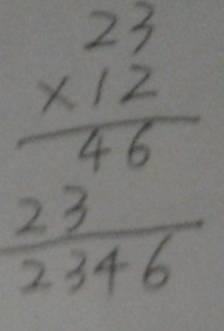 23
×12
46
23
2346